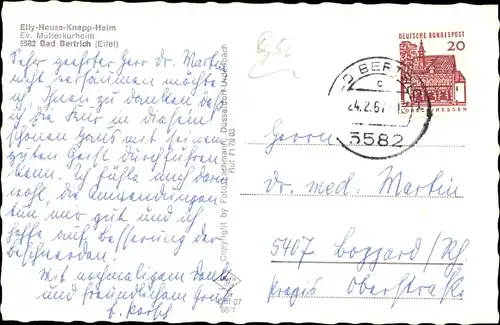 Elly-Heuss-Knapp-Heim
Ev. Mütterkurheim
5582 Bad Bertrich (Eifel)
Sehr geehrter Herr Dr. Martin
nicht versäumen möchte
ich Ihnen zu danken, daß
ich die Kur in diesem
schönen Haus mit seinem
guten Geist durchführen
kann. Ich fühle mich sehr
wohl, die Anwendungen
tun mir gut und ich
hoffe auf Besserung der
Beschwerden.
Mit nochmaligem Dank
und freundlichem Gruß
Copyright by Foto Düsseldorf
Ruf 71 70 03
DEUTSCHE BUNDESPOST
20
BAD BERTRICH
c
24.2.67
5582
Herrn
Dr. med. Martin
5407 Boppard/Rh.
Oberstraße